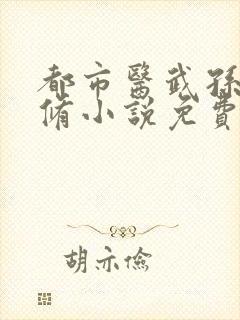 都市醫武孫
脩小説免費
胡亦儉